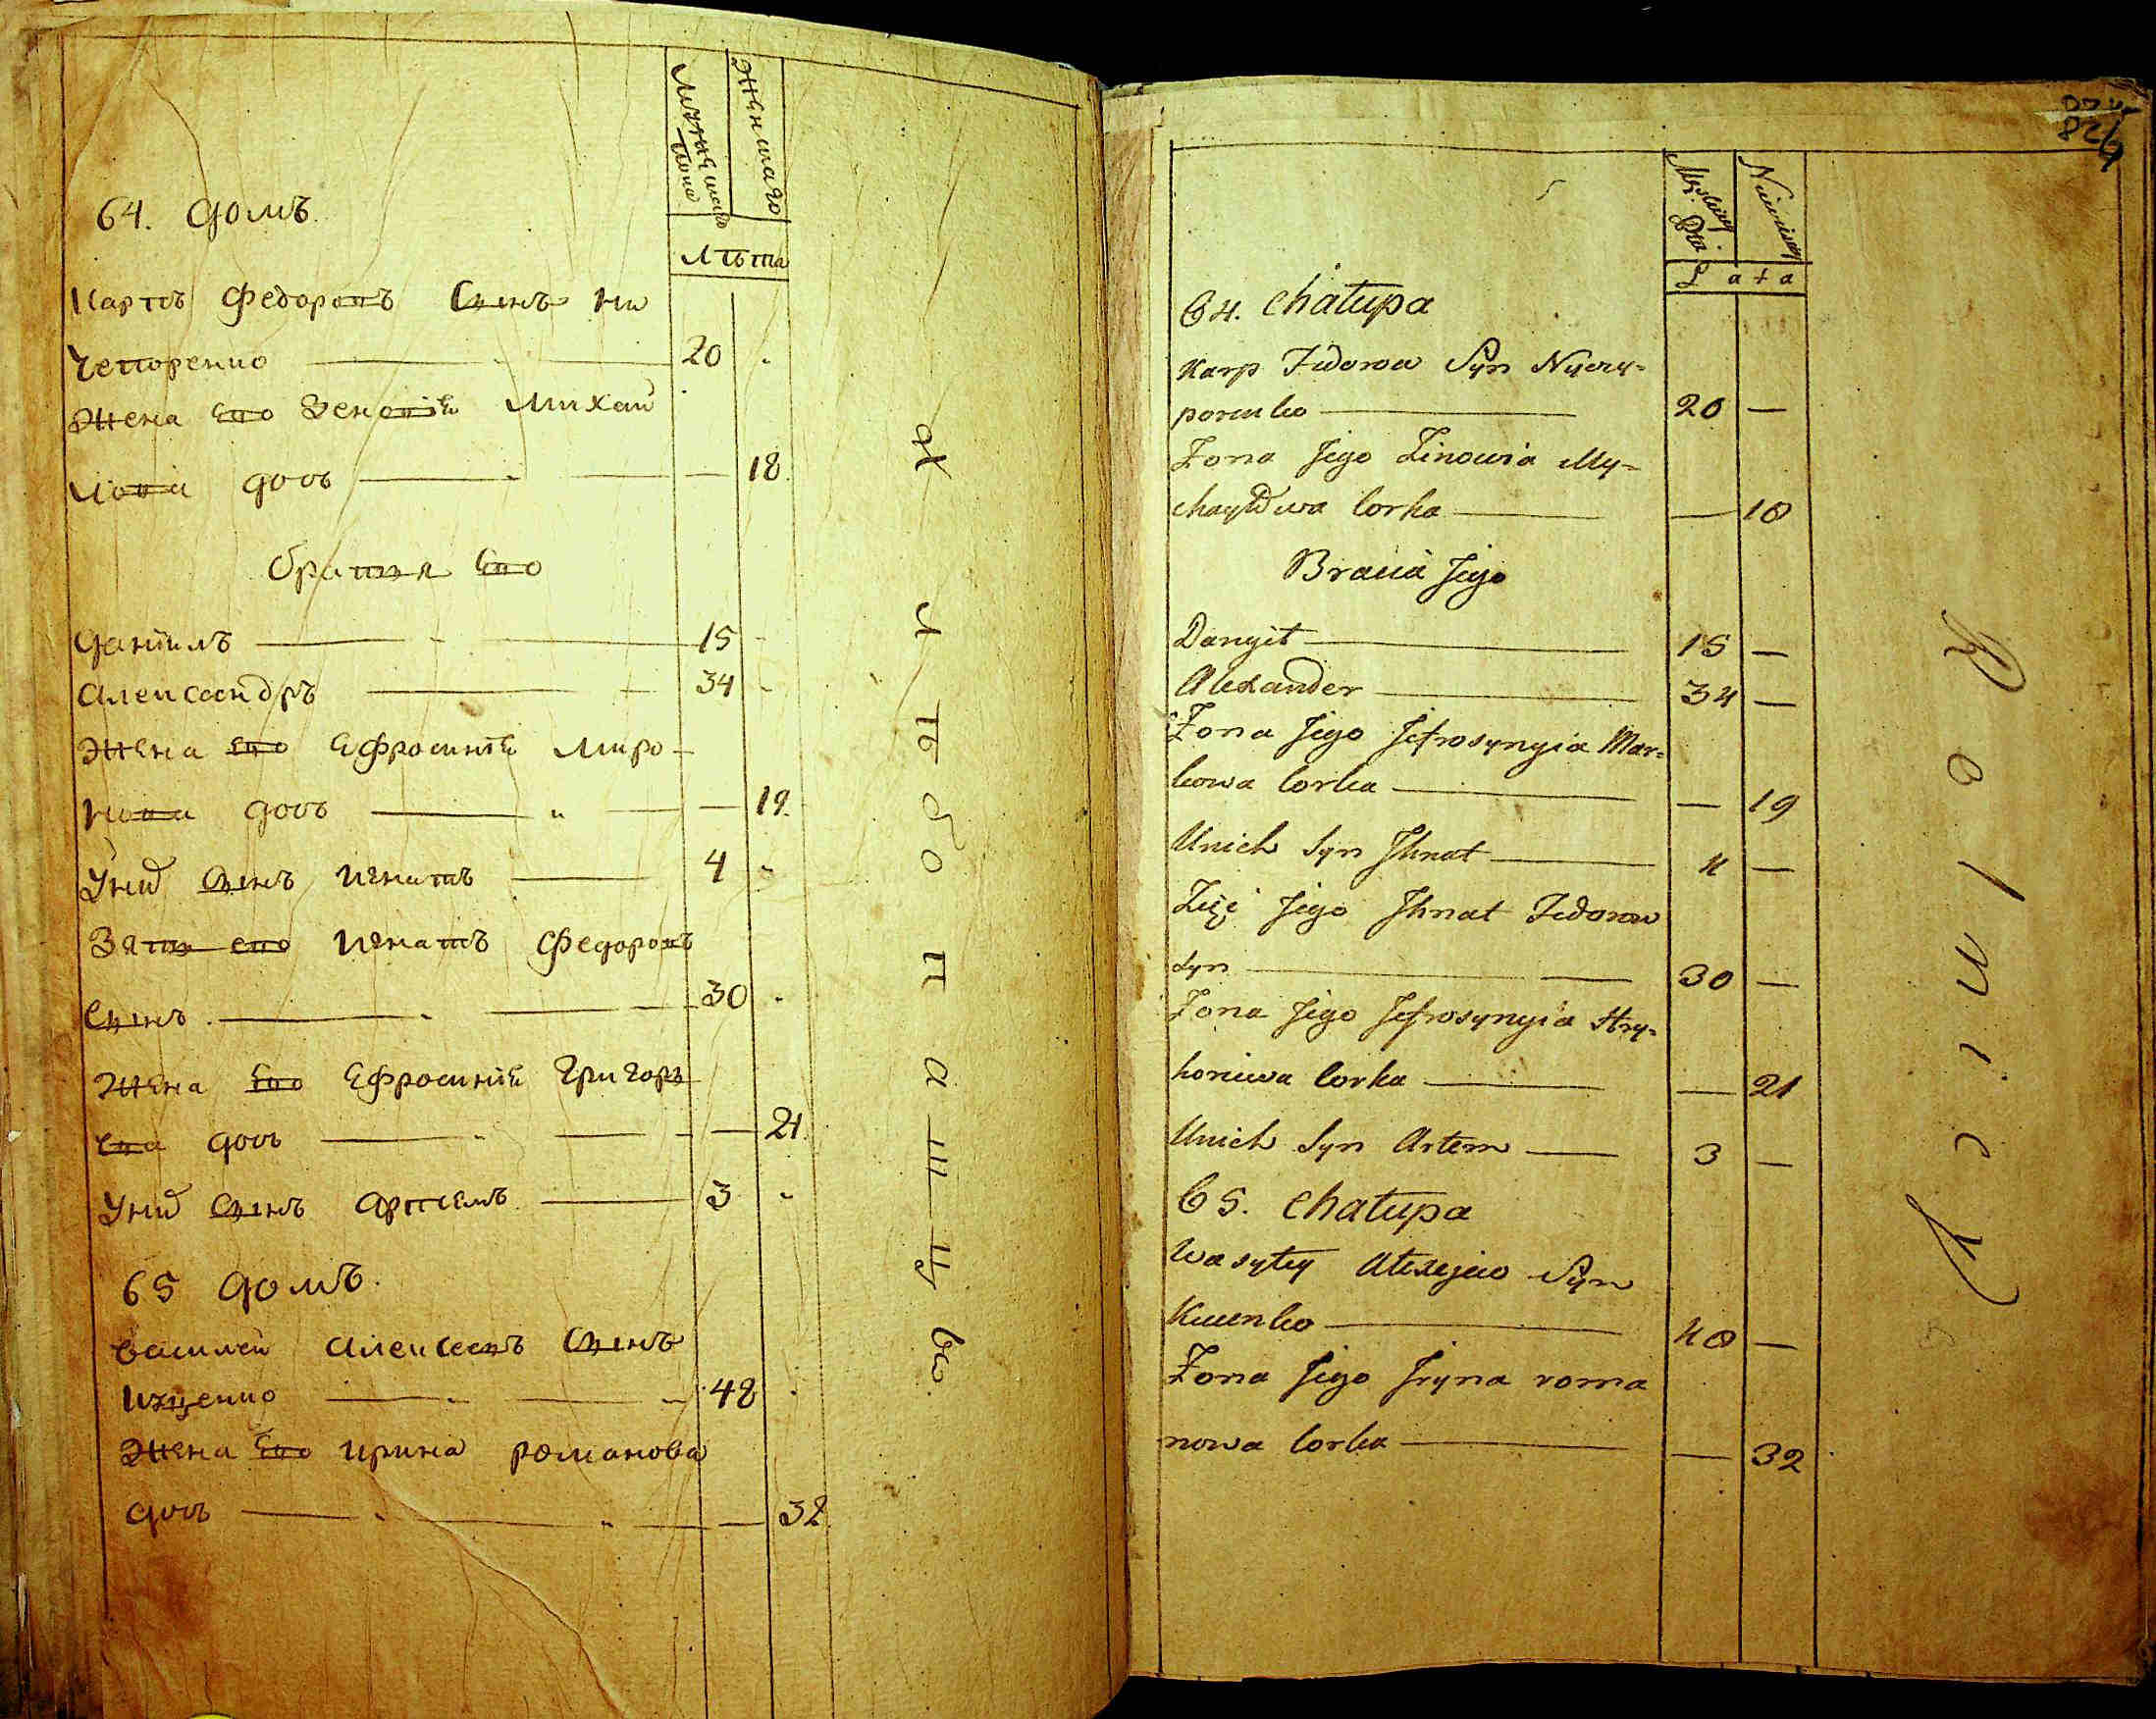 64. домъ
Мужеска
пола
Женшаго
Лѣта
Карпъ Федоровъ Сынъ Ни
чепоренко — 20
Жена Его Зеновія Михай
лова дочь — 18
братия Его
Даніилъ — 15
Александръ — 34
Жена Его Ефросинія Мирo-
нова дочь — 19.
Унихъ Сынъ Игнатъ — 4
Зять его Игнатъ Федоровъ
Сынъ — 30
Жена Его Ефросинія Григорь
ева дочь — 21.
Унихъ Сынъ Артемъ — 3
65 домъ
Василей Алексеевъ Сынъ
Куценко — 48
Жена Его Ирина романова
дочь — 32
Хлѣбопашцы
Lata
64. Chałupa
Karp Fidorow Syn Nyczy=
porenko — 20 —
Żona Jego Zinowia My=
chayłowa Corka — 18
Bracia Jego
Danyił — 15 —
Alexander — 34 —
Żona Jego Jefrosynyia Mar=
kowa Corka — 19
Unich Syn Ihnat — 4 —
Zięć Jego Ihnat Fidorow
Syn — 30 —
Żona Jego Jefrosynyia Hry=
horiewa Corka — 21
Unich Syn Artem — 3 —
65. Chałupa
Wasyłey Ałexejew Syn
Kucenko — 48 —
Żona Jego Iryna roma
nowa Corka — 32
Rolnicy